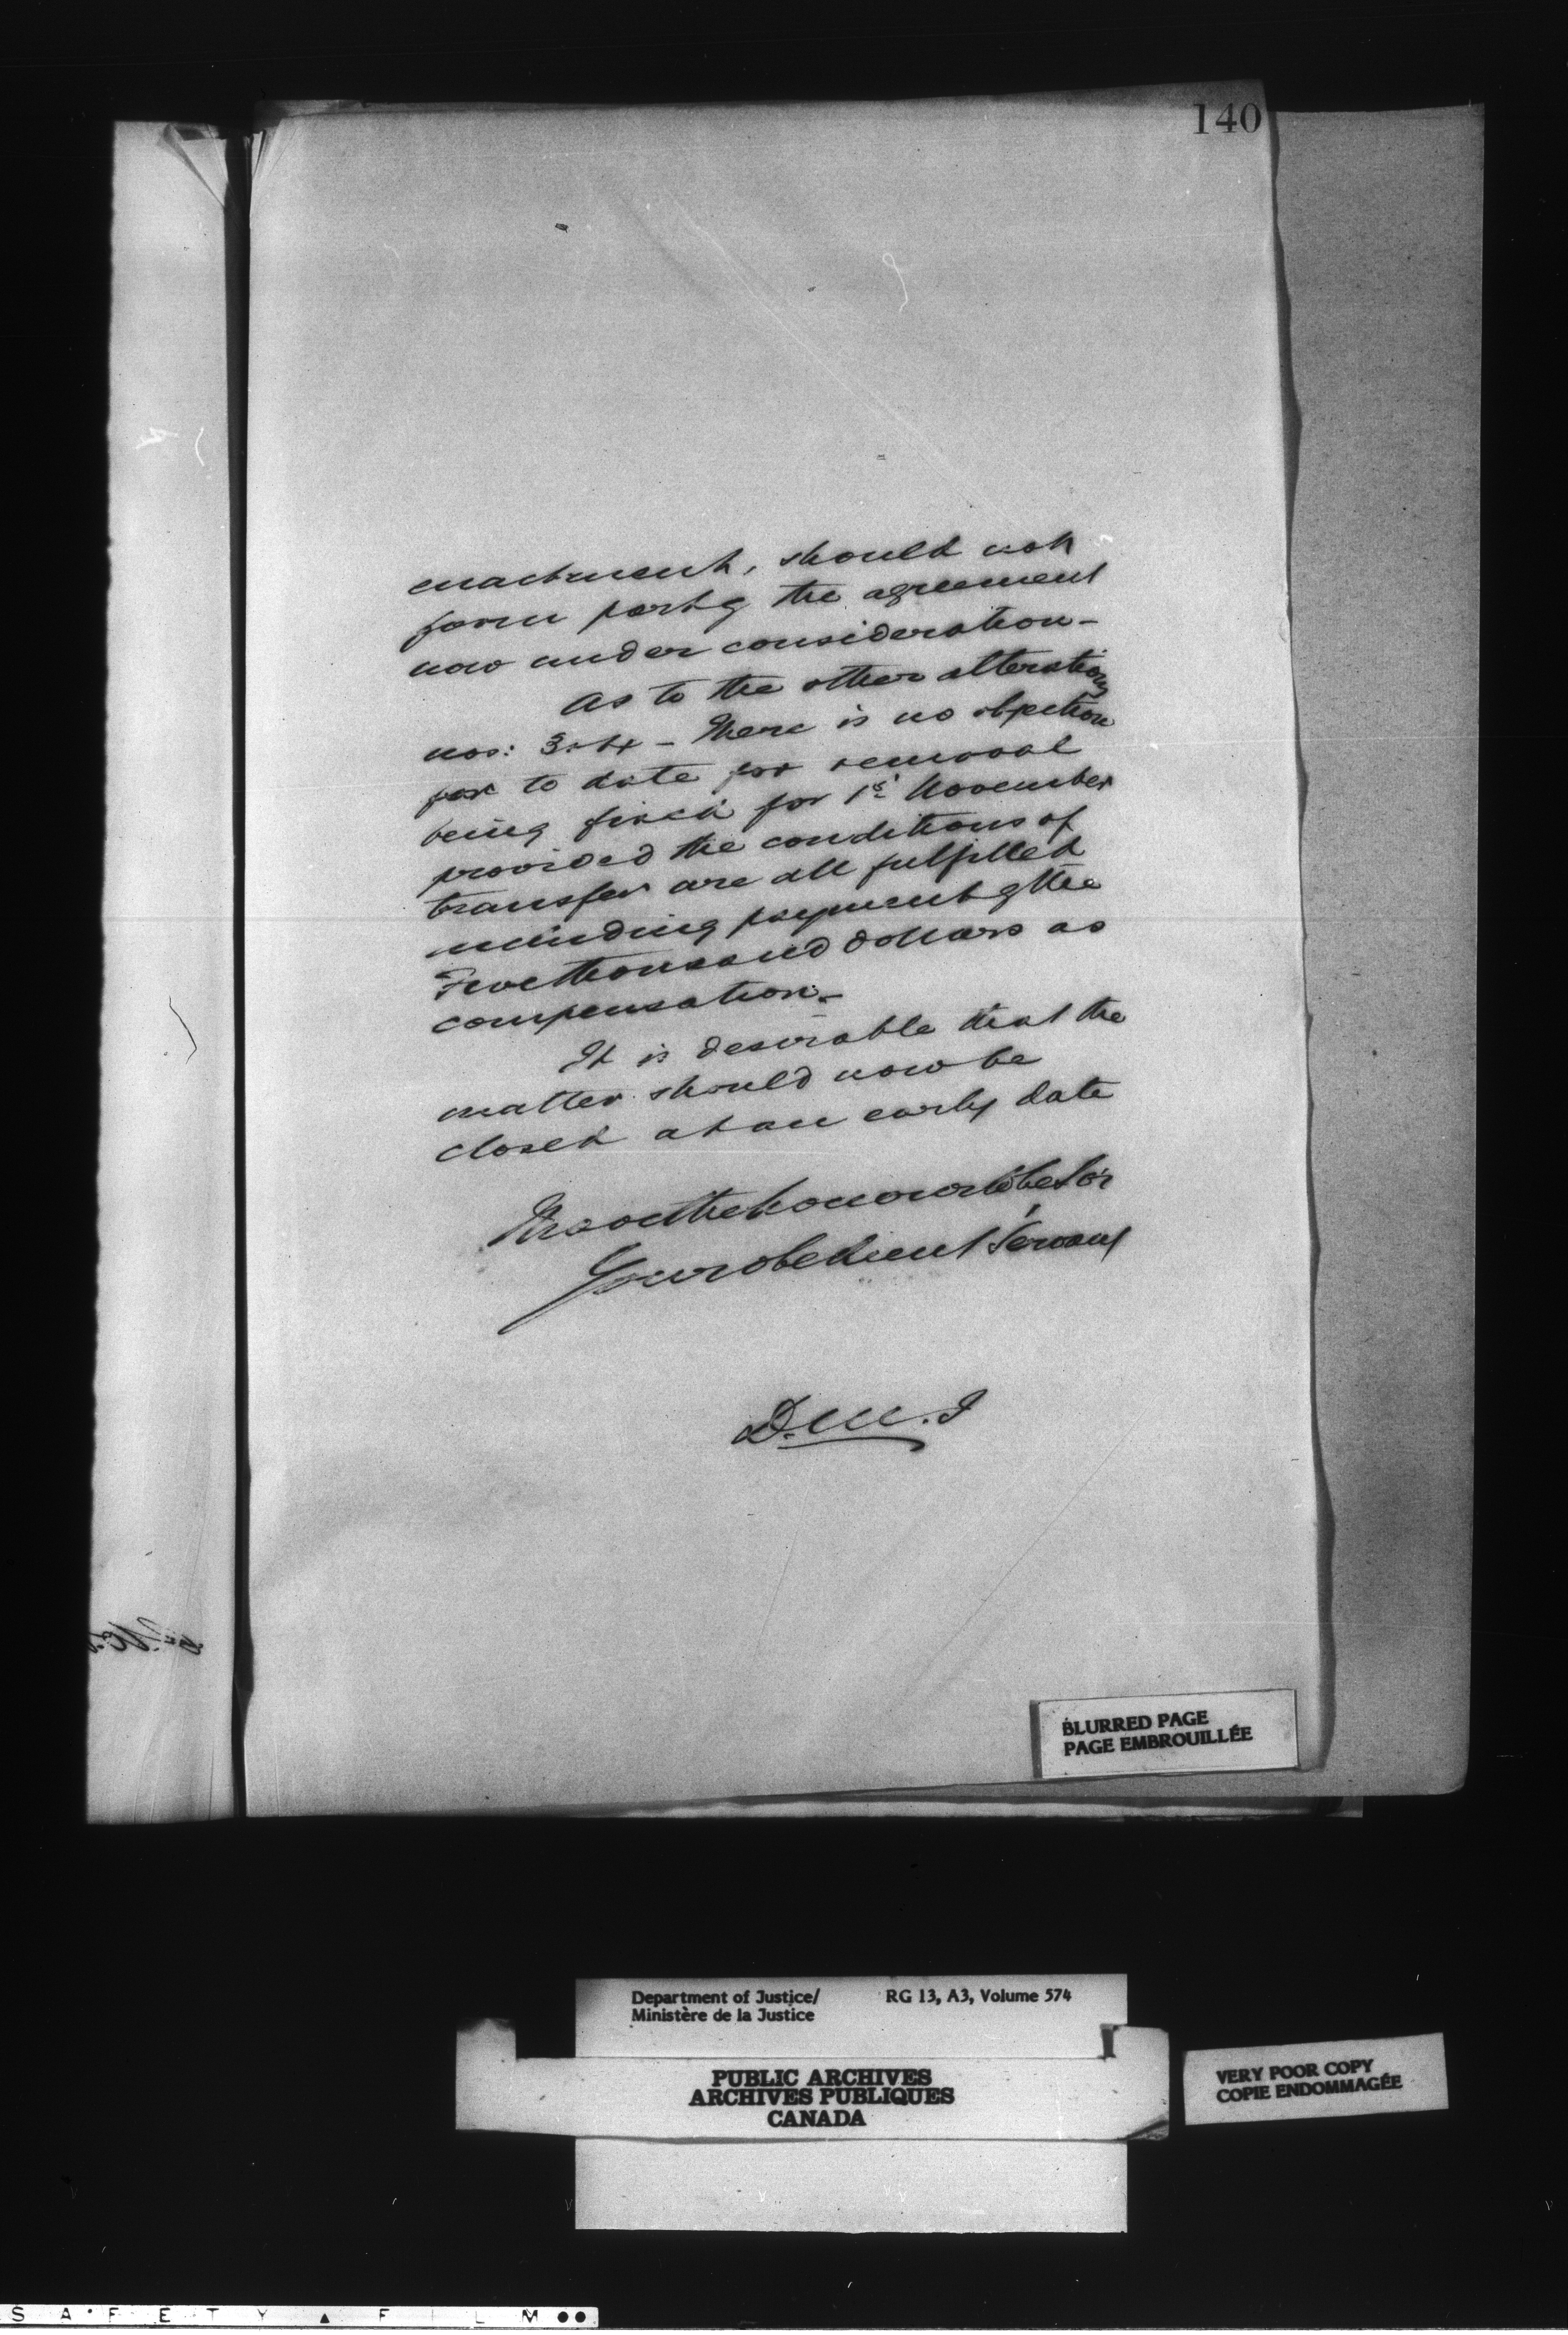 140
enactment, should not
form part of the agreement
now under consideration -
As to the other alterations
nos: 3 & 4 - There is no objection
to date for removal
being fixed for 1st November
provided the conditions of
transfer are all fulfilled
including payment of the
Five thousand dollars as
compensation -
It is desirable that the
matter should now be
closed at an early date
I have the honour to be Sir
Your obedient Servant
D.M.J
BLURRED PAGE
PAGE EMBROUILLÉE
Department of Justice/
Ministère de la Justice
RG 13, A3, Volume 574
PUBLIC ARCHIVES
ARCHIVES PUBLIQUES
CANADA
VERY POOR COPY
COPIE ENDOMMAGÉE
SAFETY ▲ FILM ●●